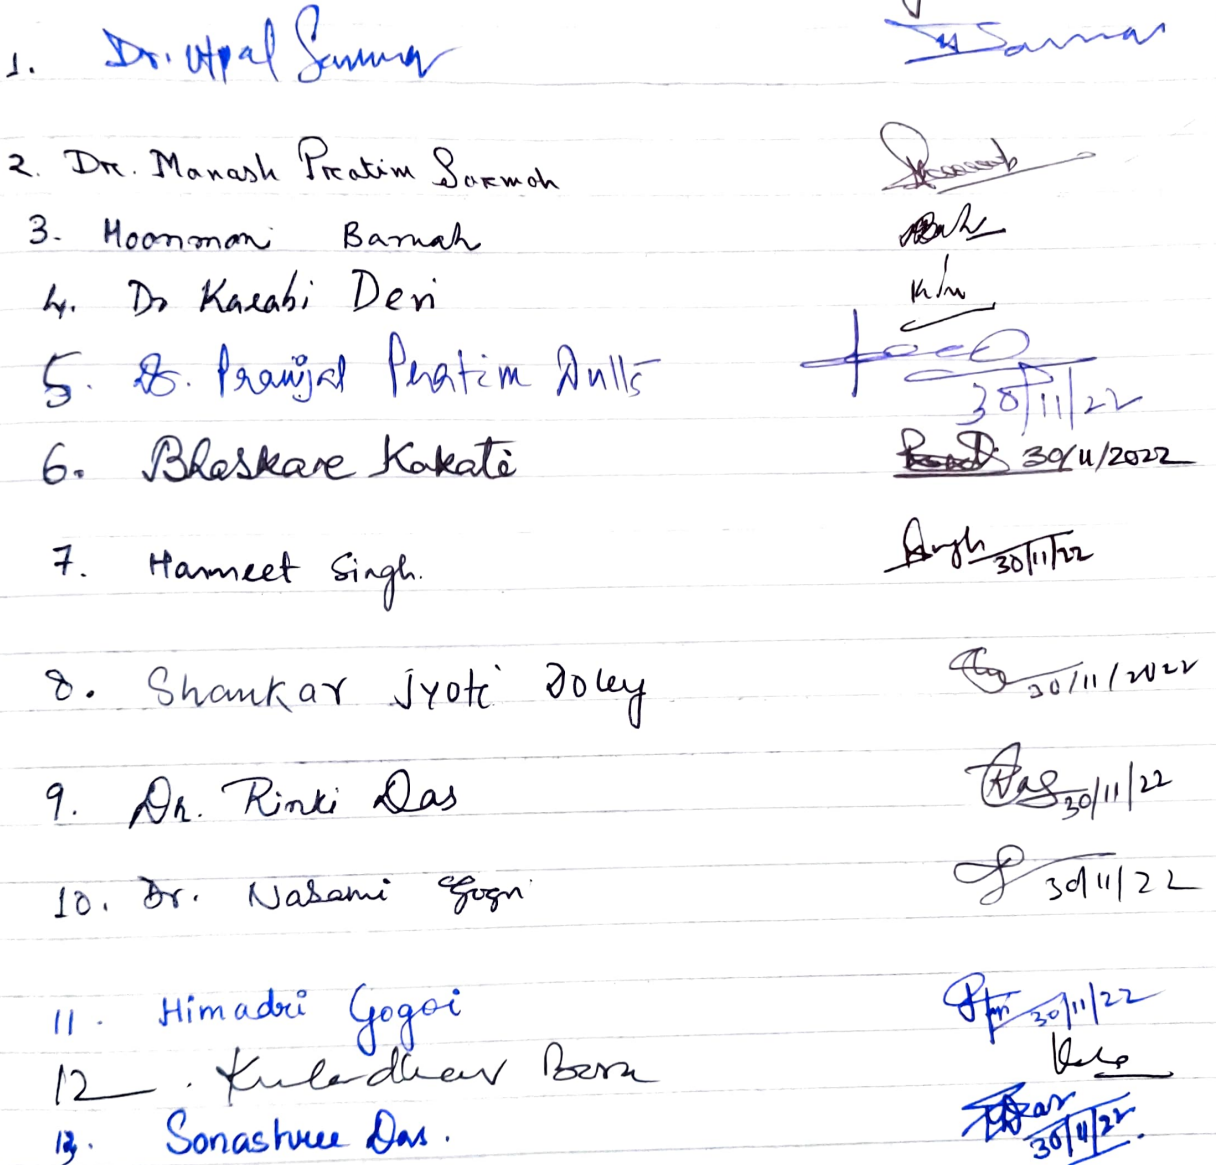 1. Dr. Utpal Sarma Sarma
2. Dr. Manash Pratim Sarmah
3. Moonmoni Baruah
4. Dr Karabi Devi
5. Dr. Pranjal Pratim Dutta 30/11/22
6. Bhaskar Kakati 30/11/2022
7. Harmeet Singh. Singh 30/11/22
8. Shankar Jyoti Doley 30/11/2022
9. Dr. Rinki Das Das 30/11/22
10. Dr. Nabami Gogoi 30/11/22
11. Himadri Gogoi 30/11/22
12. Kuladhar Bora
13. Sonashree Das. Das 30/11/22.